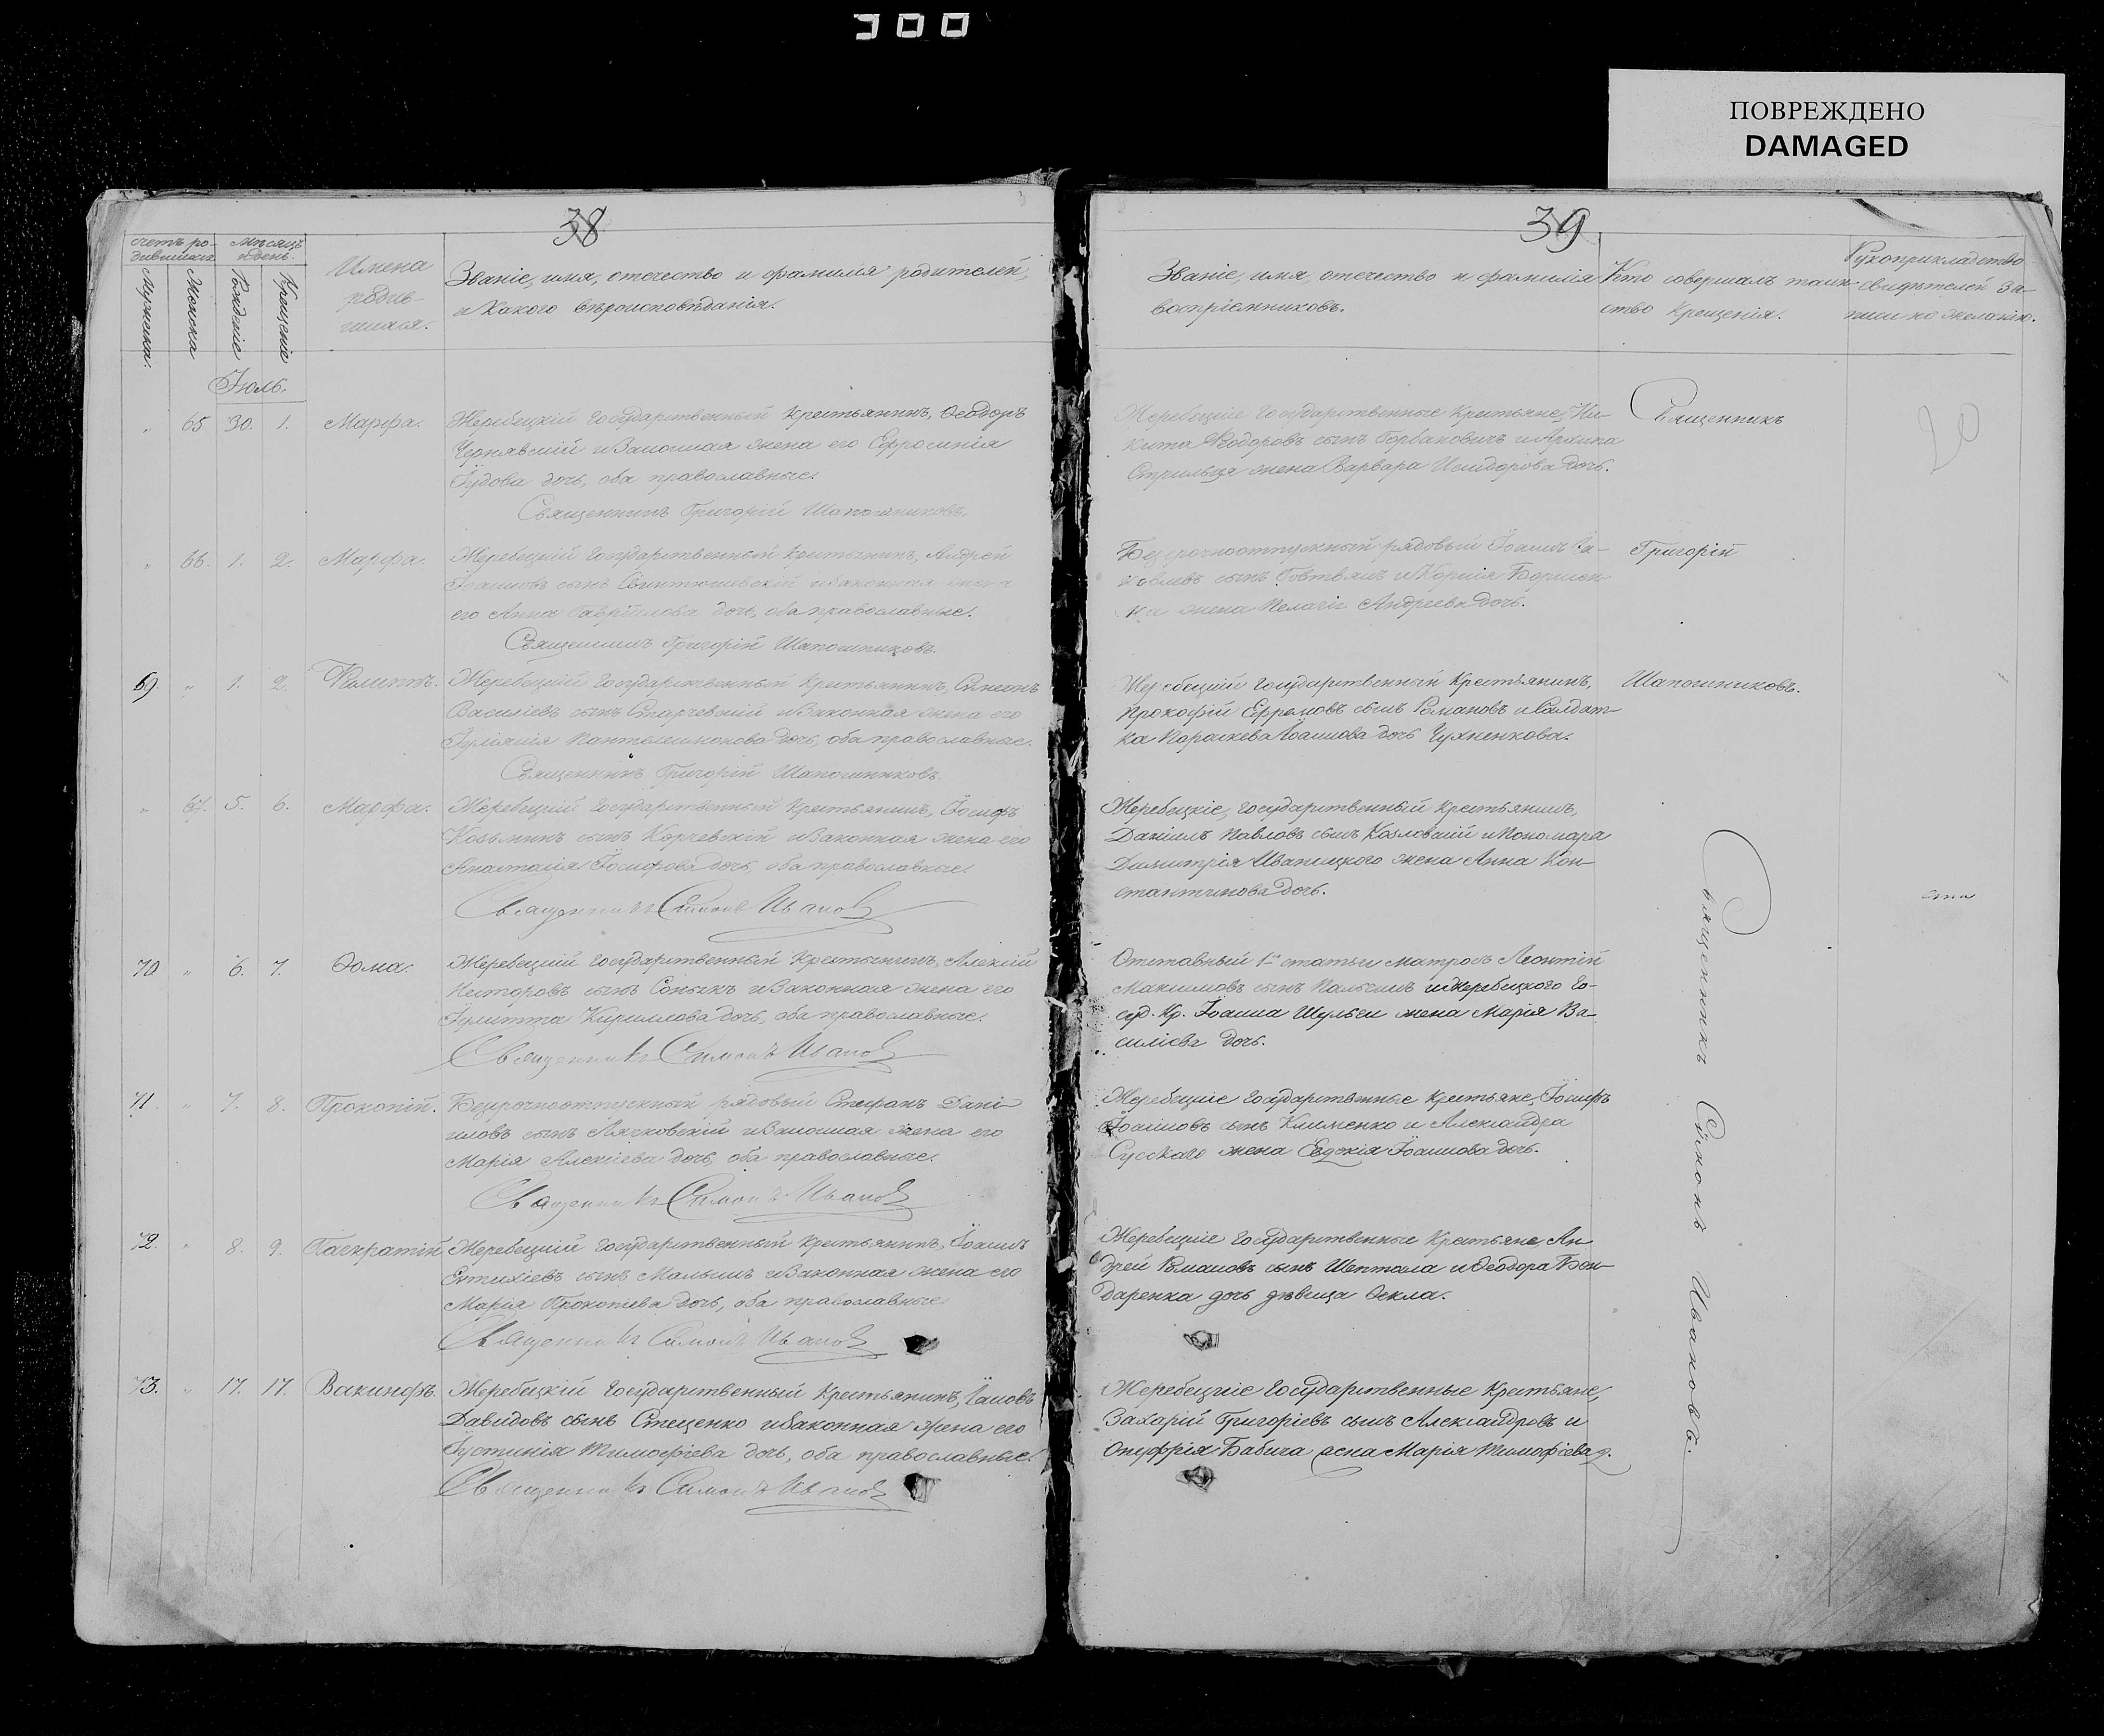 300
ПОВРЕЖДЕНО
DAMAGED
38
счетъ ро-
дившихся.
Мѣсяцъ
и день.
Мужеска.
Женска
Рожденіе
Крещеніе
Имена
родив-
шихся.
Званіе, имя, отечество и фамилія родителей,
и какого вѣроисповѣданія.
Іюль.
" 65 30. 1. Марфа. Жеребецкій государственный крестьянинъ, Ѳеодоръ
Чернявскій и законная жена его Ефросинія
Іудова дочь, оба православные.
Священникъ Григорій Шапошниковъ.
" 66. 1. 2. Марфа. Жеребецкій государственный крестьянинъ, Андрей
Іоанновъ сынъ и законная жена
его Анна Гавріилова дочь, оба православные.
Священникъ Григорій Шапошниковъ.
69 " 1. 2. Жеребецкій государственный крестьянинъ, Симеонъ
Василіевъ сынъ Старчевскій и законная жена его
Іуліанія Пантелеимонова дочь, оба православные.
Священникъ Григорій Шапошниковъ
" 67. 5. 6. Марфа. Жеребецкій государственный крестьянинъ, Іосифъ
Козьминъ сынъ Корчевскій и законная жена его
Анастасія Іосифова дочь, оба православные.
Священникъ Симонъ Ивановъ
70 " 6. 7. Ѳома. Жеребецкій государственный крестьянинъ, Алексій
Несторовъ сынъ и законная жена его
Іулитта Кириллова дочь, оба православные.
Священникъ Симонъ Ивановъ
71. " 7. 8. Прокопій. Безсрочноотпускный рядовый Стефанъ Дані-
иловъ сынъ Лячковскій и законная жена его
Марія Алексіева дочь, оба православные.
Священникъ Симонъ Ивановъ
72. " 8. 9. Панкратій Жеребецкій государственный крестьянинъ, Іоаннъ
Евтихіевъ сынъ Малышъ и законная жена его
Марія Прокопіева дочь, оба православные.
Священникъ Симонъ Ивановъ
73. " 17. 17. Вакинѳъ. Жеребецкій государственный крестьянинъ, Іаковъ
Давидовъ сынъ Стеценко и законная жена его
Іустинія Тимофіева дочь, оба православные.
Священникъ Симонъ Ивановъ
39
Званіе, имя, отечество и фамилія
воспріемниковъ.
Кто совершалъ таин-
ство крещенія.
Рукоприкладство
свидѣтелей за-
писи по желанію.
Жеребецкіе государственные крестьяне, Ни-
кита Ѳеодоровъ сынъ Горбановичъ и Архипа
Стрильця жена Варвара Исидорова дочь.
Безсрочноотпускный рядовый Іоаннъ Іа-
ковлевъ сынъ Говтвянъ и Корнія Борисен-
ка жена Пелагія Андреева дочь.
Жеребецкій государственный крестьянинъ,
Прокофій Ефремовъ сынъ Романовъ и солдат-
ка Параскева Іоаннова дочь Чухненкова.
Жеребецкіе, государственный крестьянинъ,
Даніилъ Павловъ сынъ Козловскій и Пономаря
Димитрія Иваницкого жена Анна Кон-
стантинова дочь.
Отставный 1й статьи матросъ Леонтій
Максимовъ сынъ Пальчикъ и Жеребецкого го-
суд. кр. Іоанна Шульги жена Марія Ва-
силіева дочь.
Жеребецкіе государственные крестьяне, Іосифъ
Іоанновъ сынъ Клименко и Александра
Сусскаго жена Евдокія Іоаннова дочь.
Жеребецкіе государственные крестьяне, Ан-
дрей Романовъ сынъ Шептала и Ѳеодора Бон-
даренка дочь дѣвица Ѳекла.
Жеребецкіе государственные крестьяне,
Захарій Григоріевъ сынъ Александровъ и
Онуфрія Бабича жена Марія Тимофіева д.
Священникъ
Григорій
Шапошниковъ.
Священникъ Симонъ Ивановъ.
20